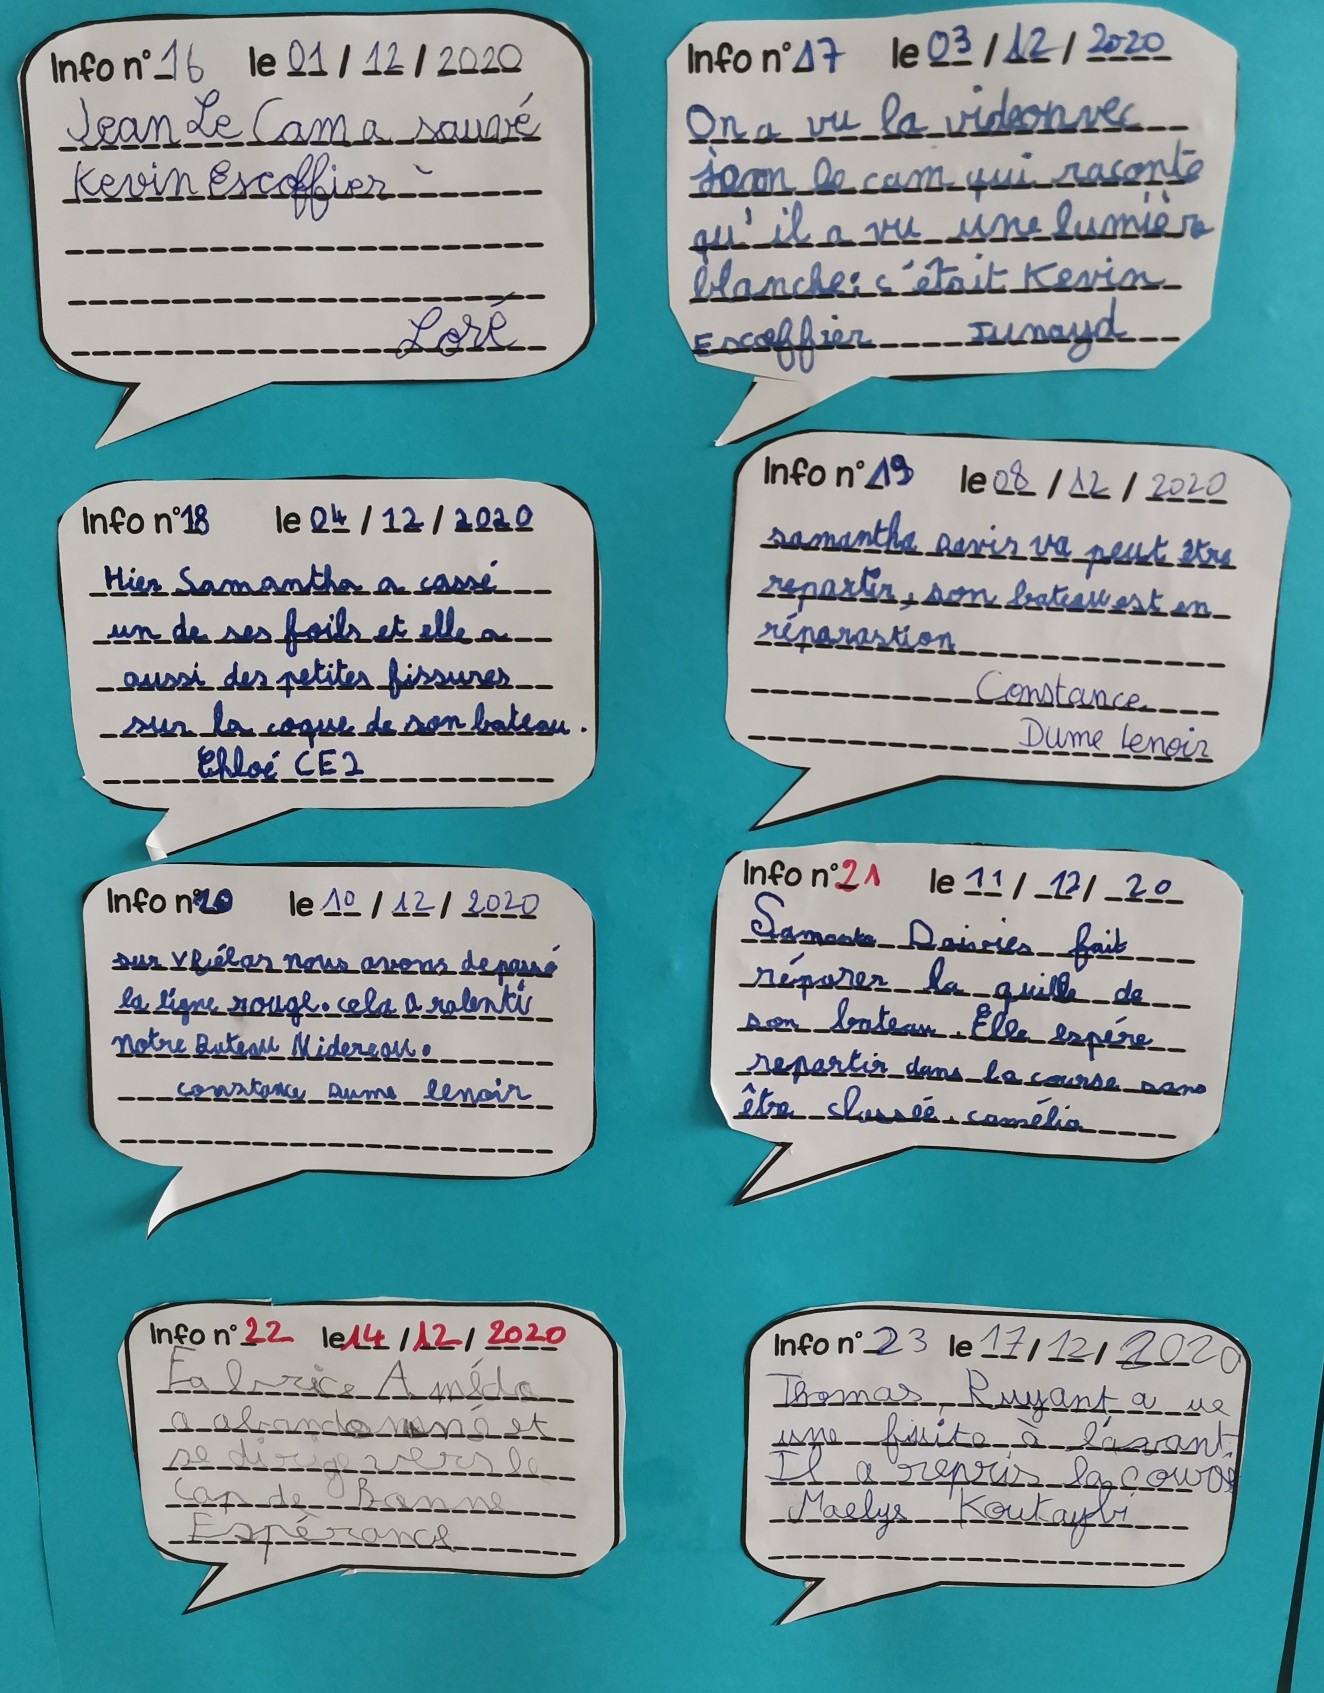 Info n° 16 le 01 / 12 / 2020
Jean Le Cam a sauvé
Kevin Escoffier
Loré
Info n° 17 le 03 / 12 / 2020
On a vu la vidéo avec
jean le cam qui raconte
qu'il a vu une lumière
blanche: c'était Kevin
Escoffier Junayd
Info n° 18 le 04 / 12 / 2020
Hier Samantha a cassé
un de ses foils et elle a
aussi des petites fissures
sur la coque de son bateau.
Chloé CE2
Info n° 19 le 08 / 12 / 2020
samantha Davis va peut être
repartir, son bateau est en
réparastion
Constance
Dume lenoir
Info n° 20 le 10 / 12 / 2020
sur VRélas nous avons depassé
la ligne rouge. cela a ralenti
notre Bateau Midereau.
constance Dume lenoir
Info n° 21 le 11 / 12 / 20
Samanta Daivies fait
réparer la quille de
son bateau. Elle espére
repartir dans la course sans
être classée. camélia
Info n° 22 le 14 / 12 / 2020
Fabrice Amédo
a abandonné et
se dirige vers le
Cap de Bonne
Espèrance
Info n° 23 le 17 / 12 / 2020
Thomas Ruyant a ue
une fuite à l'avant.
Il a repris la course
Maelys Koutaybi